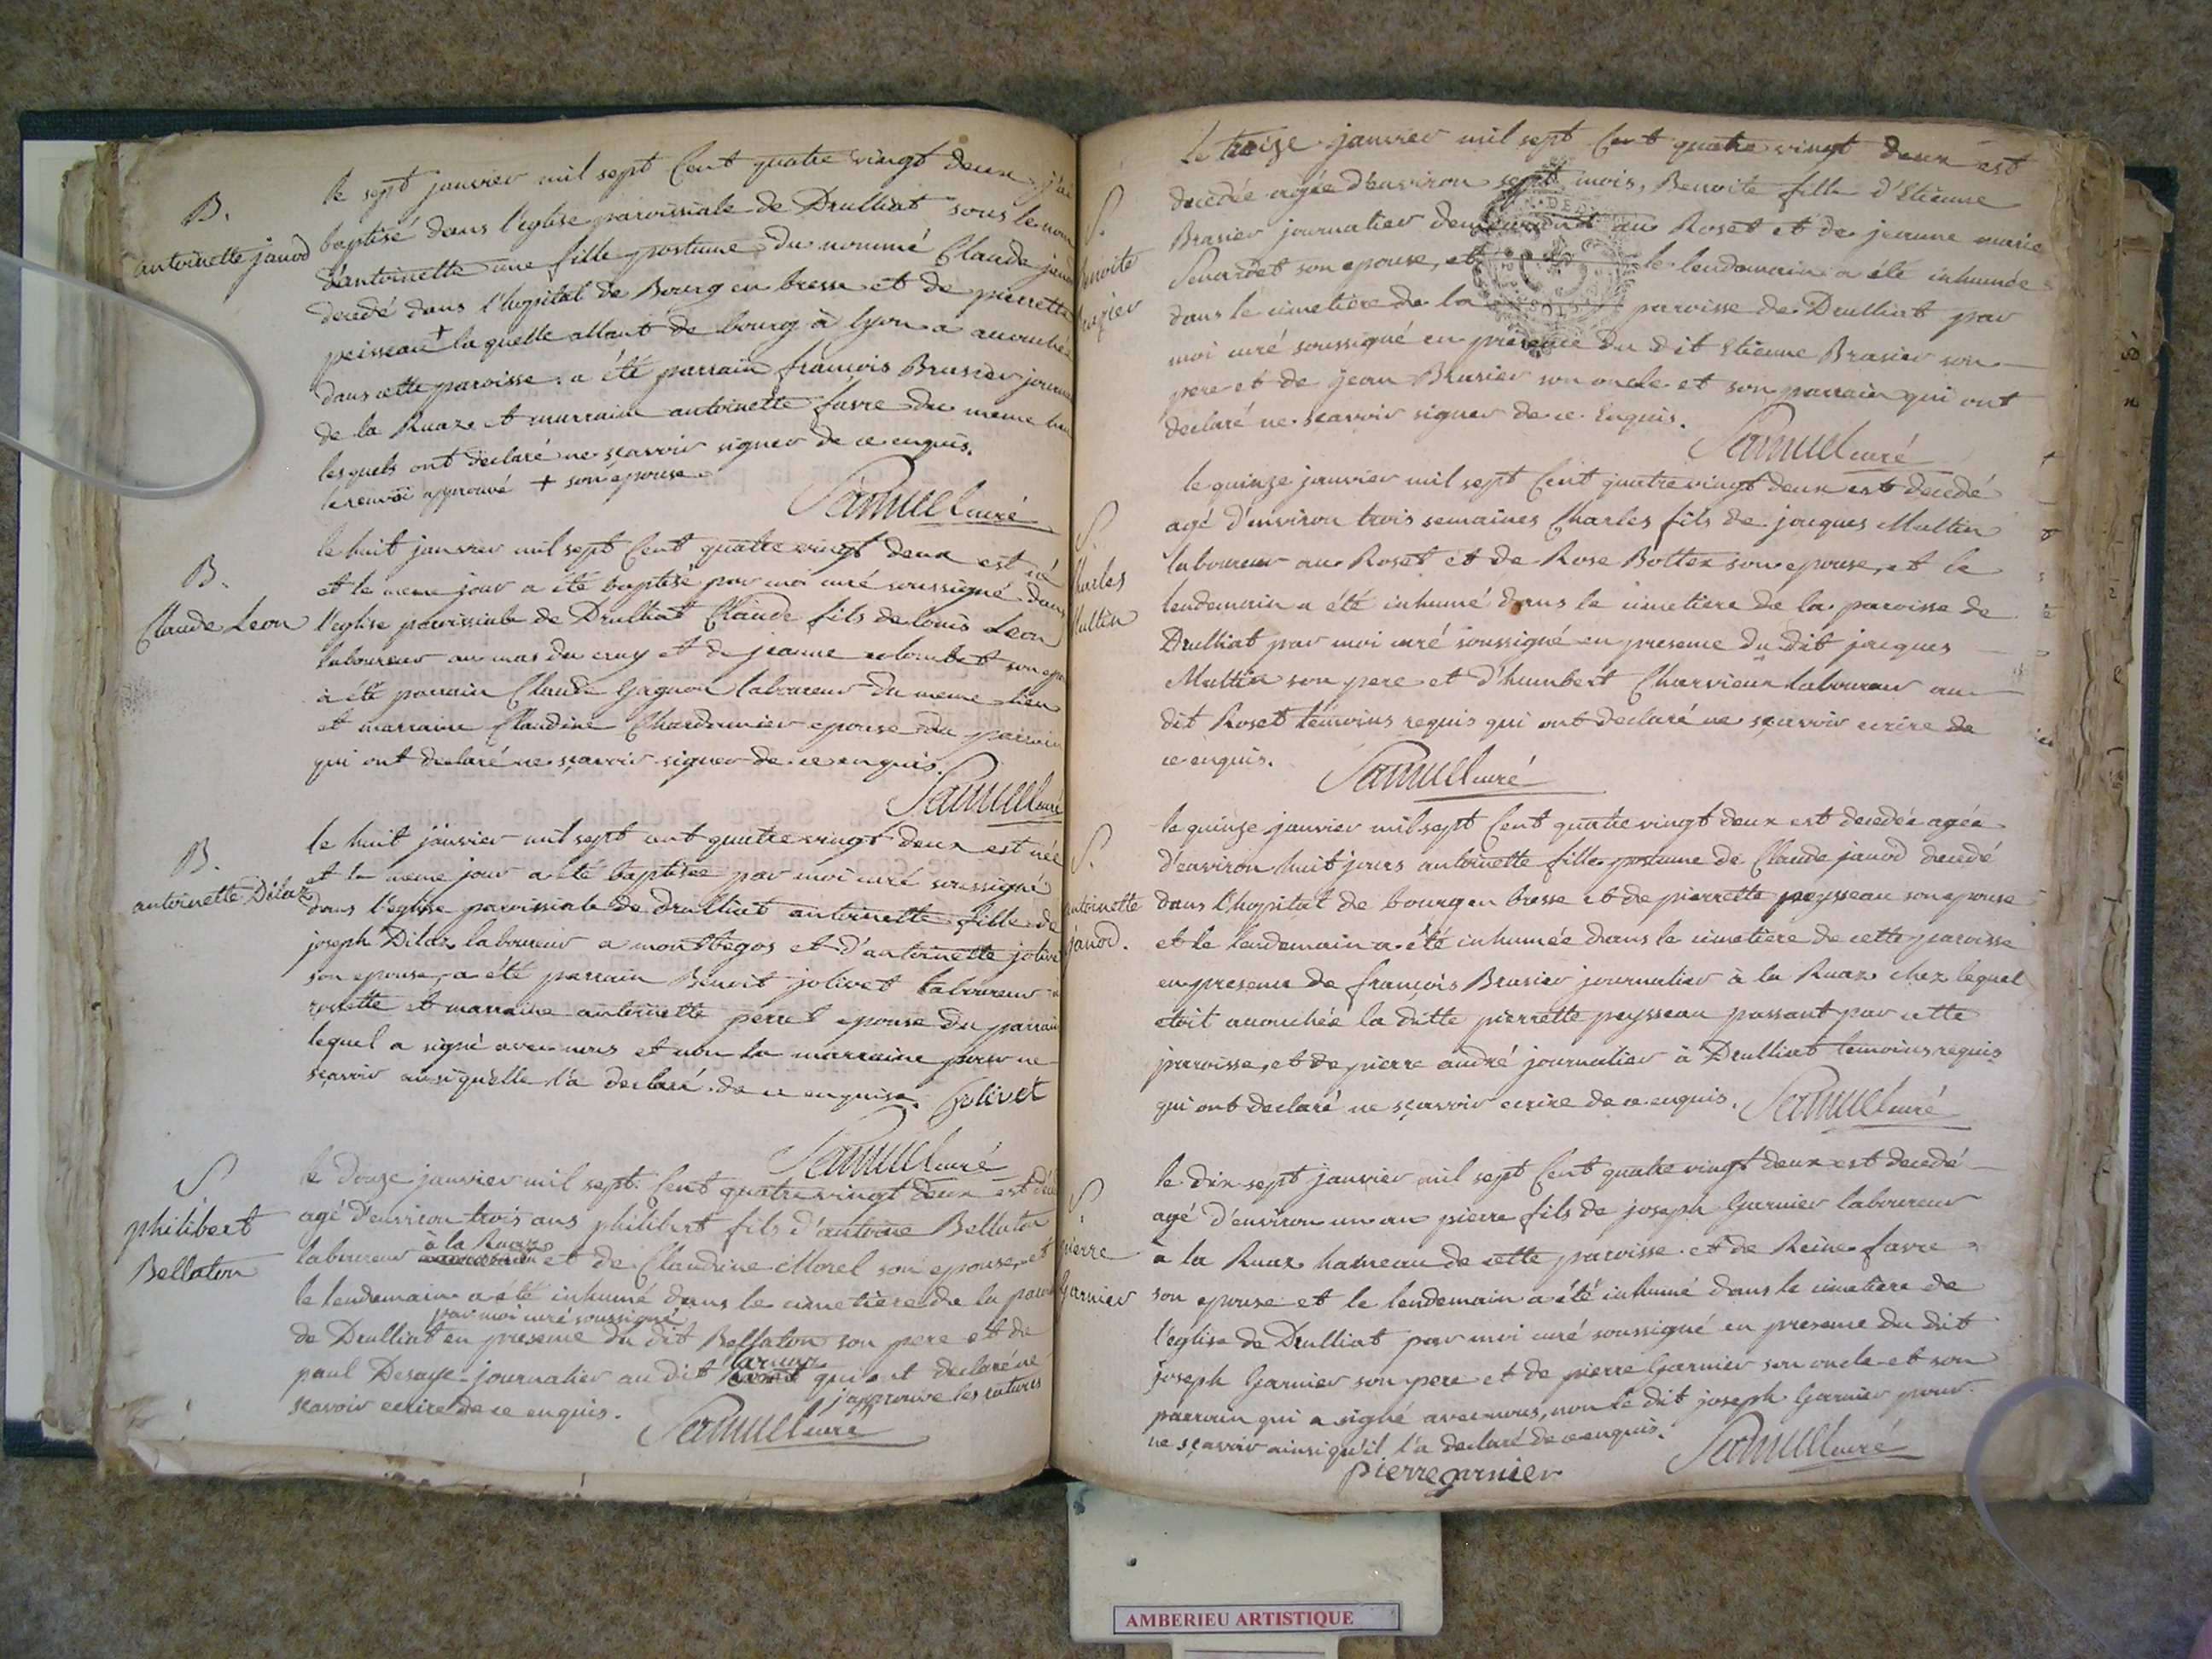 B.
antoinette janod
le sept janvier mil sept Cent quatre vingt deux j'ai
baptisé dans l'eglise paroissiale de Drulliat sous le nom
d'antoinette une fille postume du nommé Claude janod
decedé dans l'hopital de Bourg en bresse et de pierrette
peisseau + la quelle allant de bourg à lyon a accouchée
dans cette paroisse. a été parrain françois Brasier journa
de la Ruaz et marraine antoinette favre du meme lieu
lesquels ont declaré ne sçavoir signer de ce enquis.
le renvoi approuvé + son epouse.
Samuel curé
B.
Claude Leon
le huit janvier mil sept Cent quatre vingt deux est né
et le meme jour a été baptisé par moi curé soussigné dans
l'eglise paroissiale de Drulliat Claude fils de louis Leon
laboureur au mas du cruy et de jeanne colombet son epou
à été parrain Claude Gagnon laboureur du meme lieu
et marraine Claudine Chardonnier epouse du parrain
qui ont declaré ne sçavoir signer de ce enquis.
Samuel curé
B.
antoinette Dilaz
le huit janvier mil sept cent quatre vingt deux est née
et le meme jour a été baptisée par moi curé soussigné
dans l'eglise paroissiale de drulliat antoinette fille de
joseph Dilaz laboureur a montbegos et d'antoinette jolivet
son epouse, a été parrain Benoit jolivet laboureur a
rosette et marraine antoinette perret epouse du parrain
lequel a signé avec nous et non la marraine pour ne
sçavoir ainsi qu'elle l'a declaré de ce enquise. Jolivet
Samuel curé
S
philibert
Bellaton
le douze janvier mil sept Cent quatre vingt deux est déce
agé d'environ trois ans philibert fils d'antoine Bellaton
laboureur à la Ruaz et de Claudine Morel son epouse, et
le lendemain a été inhumé dans le cimetière de la paroi
par moi curé soussigné
de Drulliat en presence du dit Bellaton son pere et de
paul Desaye journalier au dit laruaz qui ont declaré ne
sçavoir ecrire de ce enquis. j'approuve les ratures
Samuel curé
S.
benoite
brazier
Le treize janvier mil sept Cent quatre vingt deux est
decedée agée d'environ sept mois, Benoite fille d'Etienne
Brasier journalier demeurant au Roset et de jeanne marie
Senardet son epouse, et le lendemain a été inhumée
dans le cimetière de la paroisse de Drulliat par
moi curé soussigné en presence du dit Etienne Brasier son
pere et de jean Brasier son oncle et son parrain qui ont
declaré ne scavoir signer de ce Enquis.
Samuel curé
S.
Charles
Multin
le quinze janvier mil sept Cent quatre vingt deux est decedé
agé d'environ trois semaines Charles fils de jacques Multin
laboureur au Roset et de Rose Bottex son epouse, et le
lendemain a été inhumé dans le cimetière de la paroisse de
Drulliat par moi curé soussigné en presence du dit jacques
Multin son pere et d'humbert Charvieux laboureur au
dit Roset témoins requis qui ont declaré ne sçavoir ecrire de
ce enquis.
Samuel curé
S.
antoinette
janod.
le quinze janvier mil sept Cent quatre vingt deux est decedée agée
d'environ huit jours antoinette fille postume de Claude janod decedé
dans l'hopital de bourg en bresse et de pierrette peysseau son epouse
et le lendemain a été inhumée dans le cimetière de cette paroisse
en presence de françois Brasier journalier à la Ruaz chez lequel
etoit accouchée la ditte pierrette peysseau passant par cette
paroisse, et de pierre andré journalier à Drulliat temoins requis
qui ont declaré ne sçavoir ecrire de ce enquis. Samuel curé
S.
pierre
Garnier
le dix sept janvier mil sept Cent quatre vingt deux est decedé
agé d'environ un an pierre fils de joseph Garnier laboureur
à la Ruaz hameau de cette paroisse et de Reine favre
son epouse et le lendemain a été inhumé dans le cimetière de
l'eglise de Drulliat par moi curé soussigné en presence du dit
joseph Garnier son pere et de pierre Garnier son oncle et son
parrain qui a signé avec nous, non le dit joseph Garnier pour
ne sçavoir ainsi qu'il l'a declaré de ce enquis.
Samuel curé
pierre garnier
AMBERIEU ARTISTIQUE